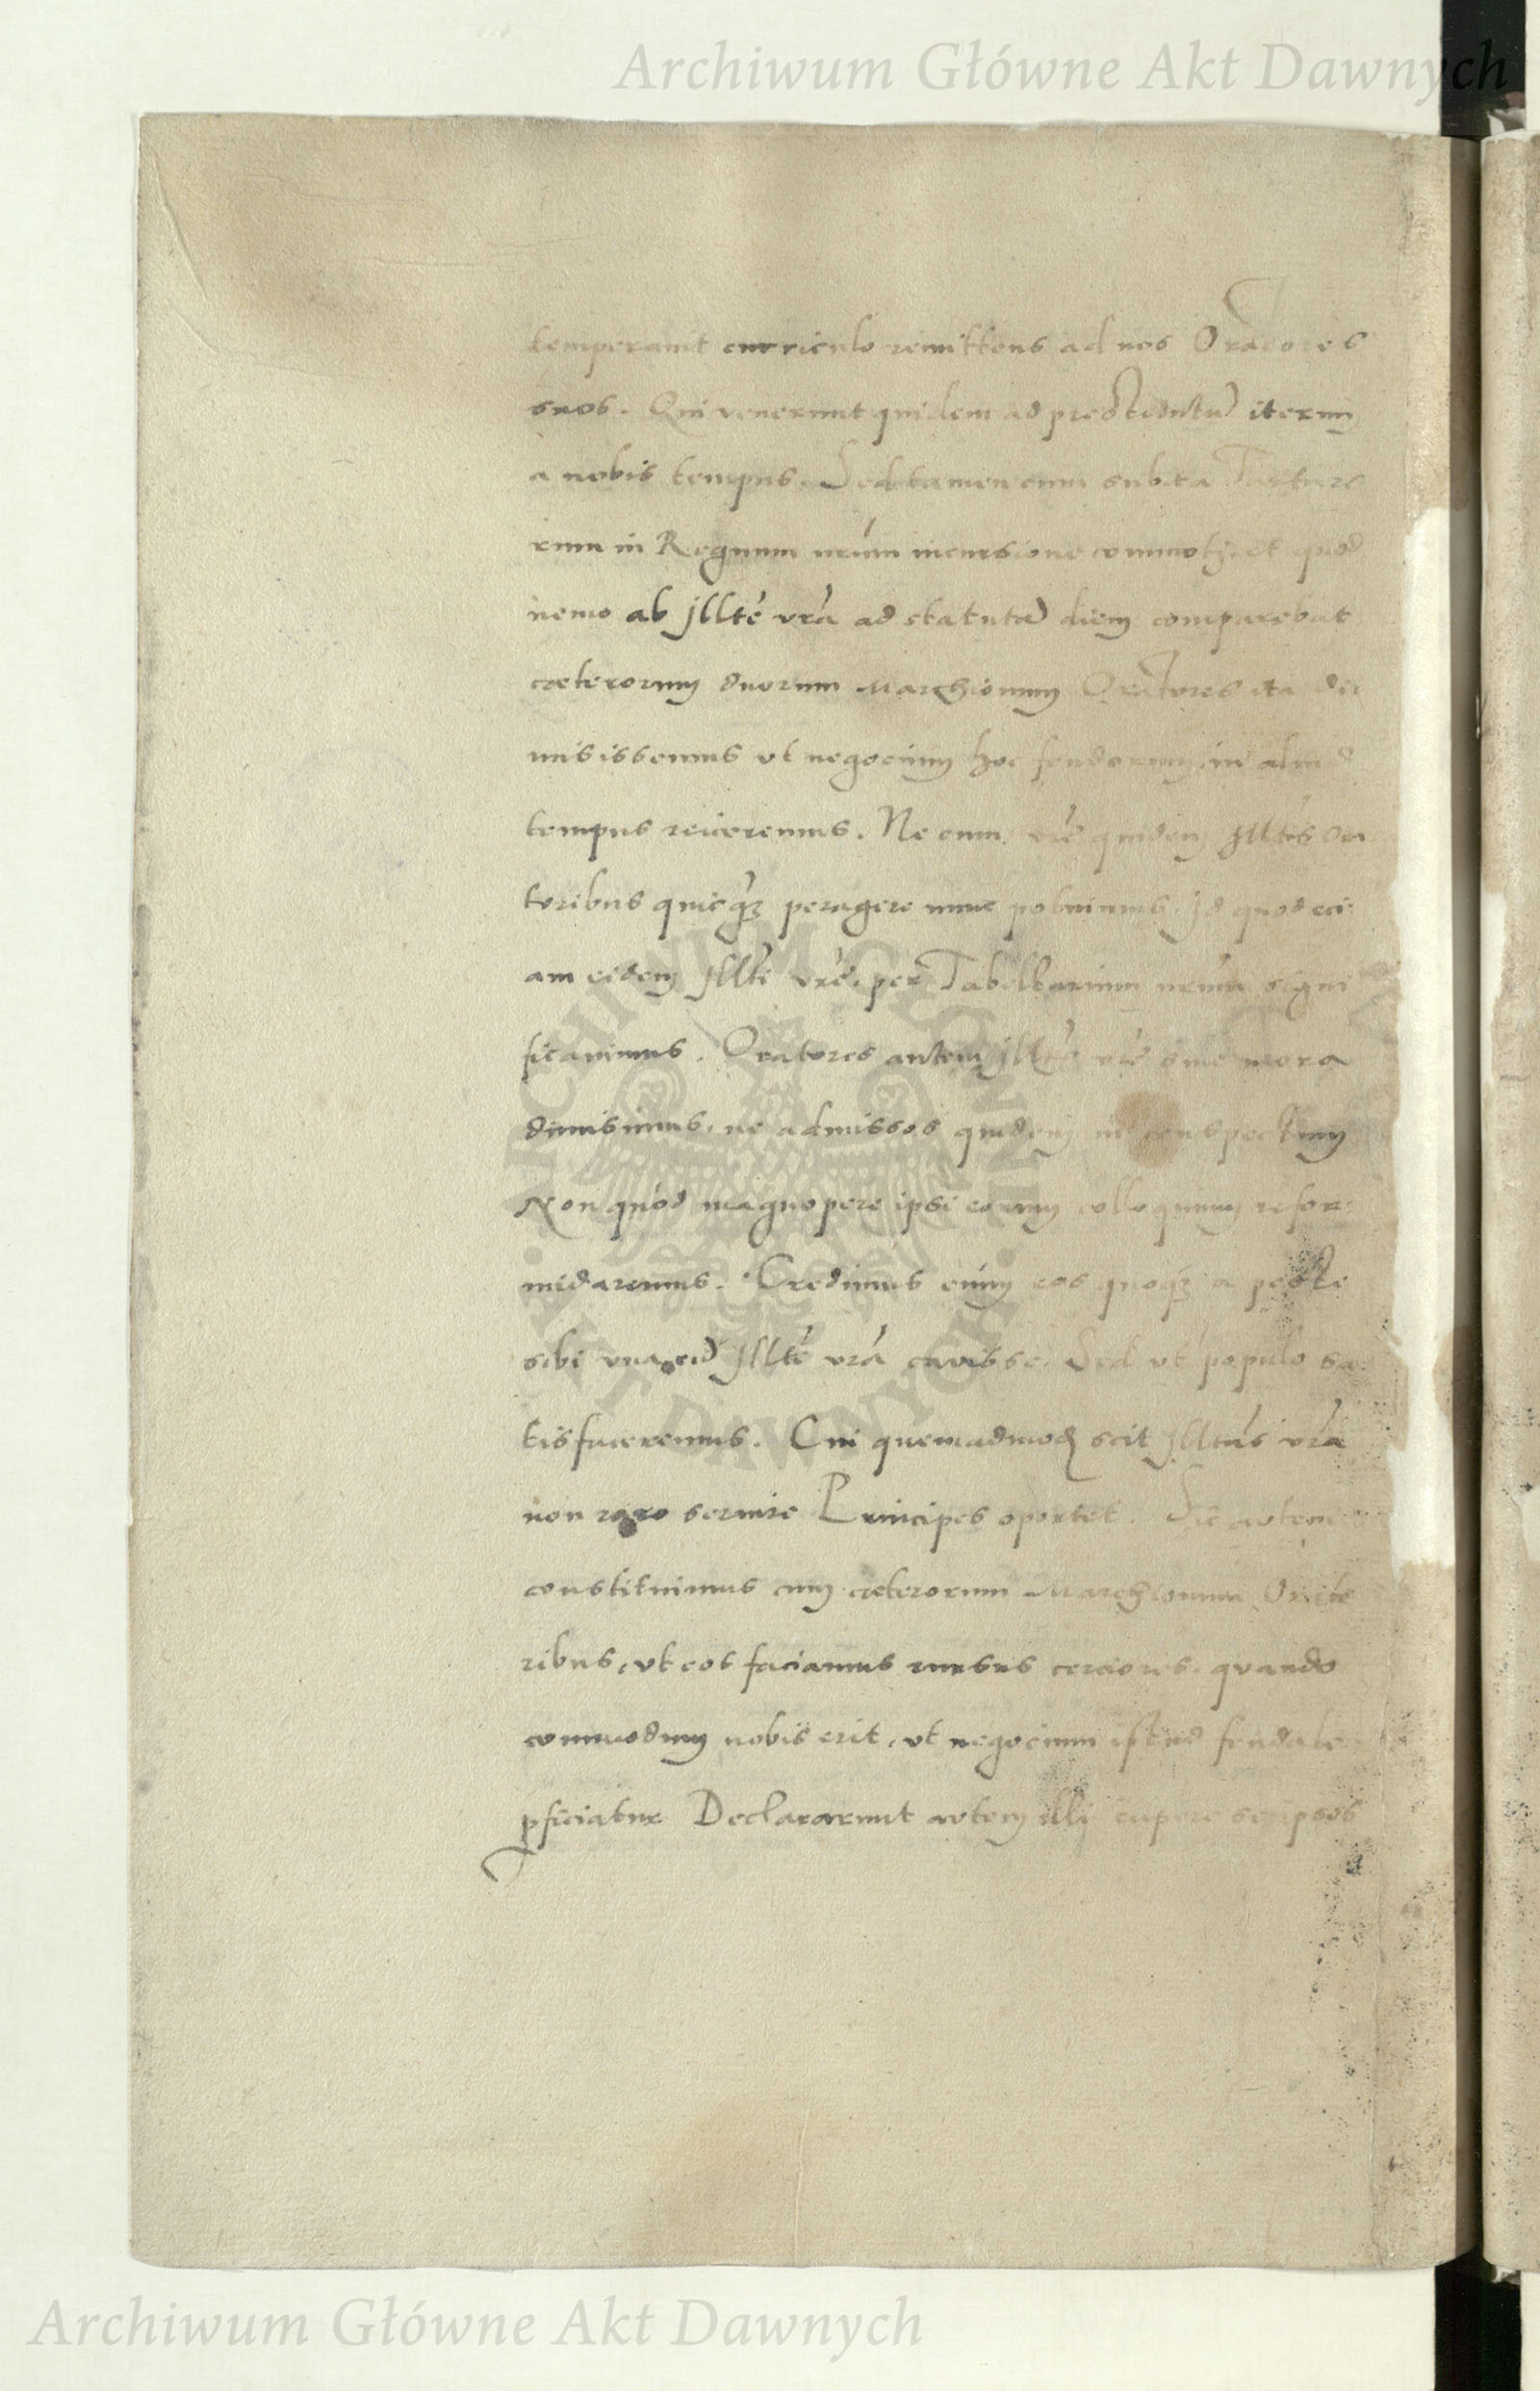 Archiwum Główne Akt Dawnych
temperavit curriculo remittens ad nos Oratores
suos. Qui venerunt quidem ad prestitutū iterum
a nobis tempus. Sed tamen cum subita Tartaro
rum in Regnum nrūm incursione commoti, et quod
nemo ab Illte vra ad statutū diem comparebat
cæterorum duorum Marchionum Oratores ita di
misissemus vt negocium hoc feudorum, in aliud
tempus reiiceremus. Ne cum vre quidem Illtis Ora
toribus quicq̃ peragere nunc potuimus. Id quod eci
am eidem Illti vre. per Tabellarium nrum signi
ficavimus. Oratores autem Illtis vre sine mora
dimisimus, ne admissos quidem in conspectum
Non quòd magnopere ipsi eorum colloquium refor
midaremus. Credimus enim eos quoq; a peste
sibi una cū Illte vra cavisse. Sed vt populo sa
tisfaceremus. Cui quemadmod scit Illtas vra
non raro servire Principes oportet. Sic autem
constituimus cum cæterorum Marchionum Orato
ribus, vt eos faciamus rursus cerciores. quando
commodum nobis erit, vt negocium istud feudale
pficiatur Declararunt autem illi cupere se ipsos
ARCHIWUM GŁÓWNE AKT DAWNYCH
Archiwum Główne Akt Dawnych